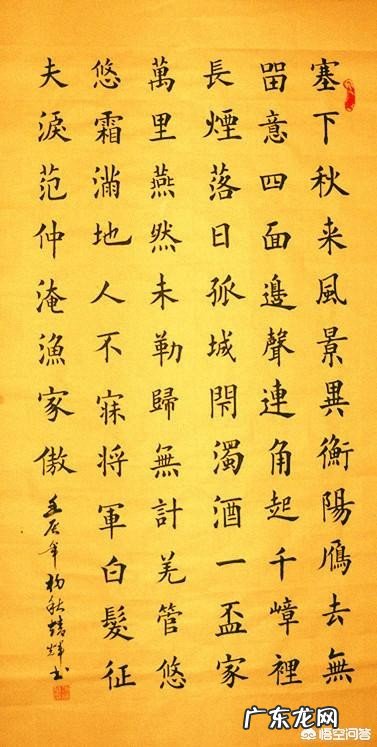 塞下秋来風景異衡陽鴈去無
㽞意四面邊聲連角起千嶂裡
長煙落日孤城閇濁酒一盃家
萬里燕然未勒歸無計羌管悠
悠霜滿地人不寐将軍白髮征
夫淚范仲淹漁家傲
壬辰年杨秋书
悟空问答
广东龙网